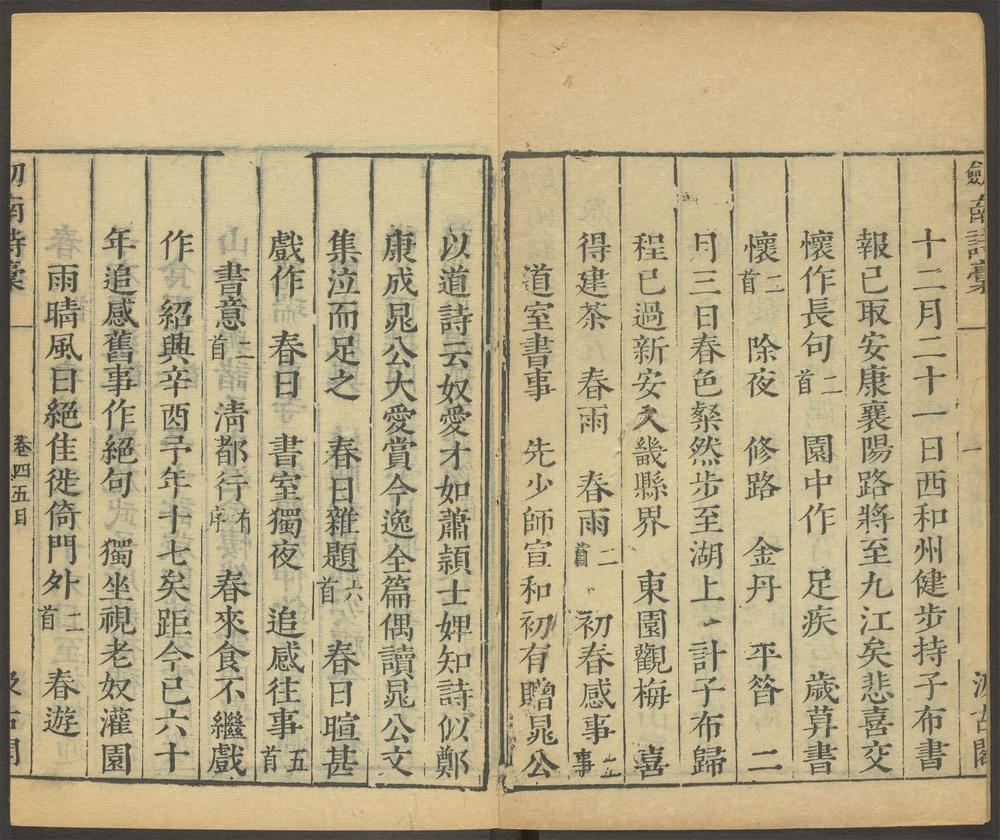 劍南詩稾 一 汲古閣
十二月二十一日西和州健步持子布書
報已取安康襄陽路將至九江矣悲喜交
懷作長句二首 園中作 足疾 歲暮書
懷二首 除夜 修路 金丹 平昝 二
月三日春色粲然步至湖上 計子布歸
程已過新安入畿縣界 東園觀梅 喜
得建茶 春雨 春雨二首 初春感事二事
道室書事 先少師宣和初有贈晁公
以道詩云奴愛才如蕭穎士婢知詩似鄭
康成晁公大愛賞今逸全篇偶讀晁公文
集泣而足之 春日雜題六首 春日暄甚
戲作 春日 書室獨夜 追感往事五首
書意二首 淸都行有序 春來食不繼戲
作 紹興辛酉予年十七矣距今已六十
年追感舊事作絕句 獨坐視老奴灌園
雨晴風日絕佳徙倚門外二首 春遊
劍南詩稾 卷四五目 汲古閣